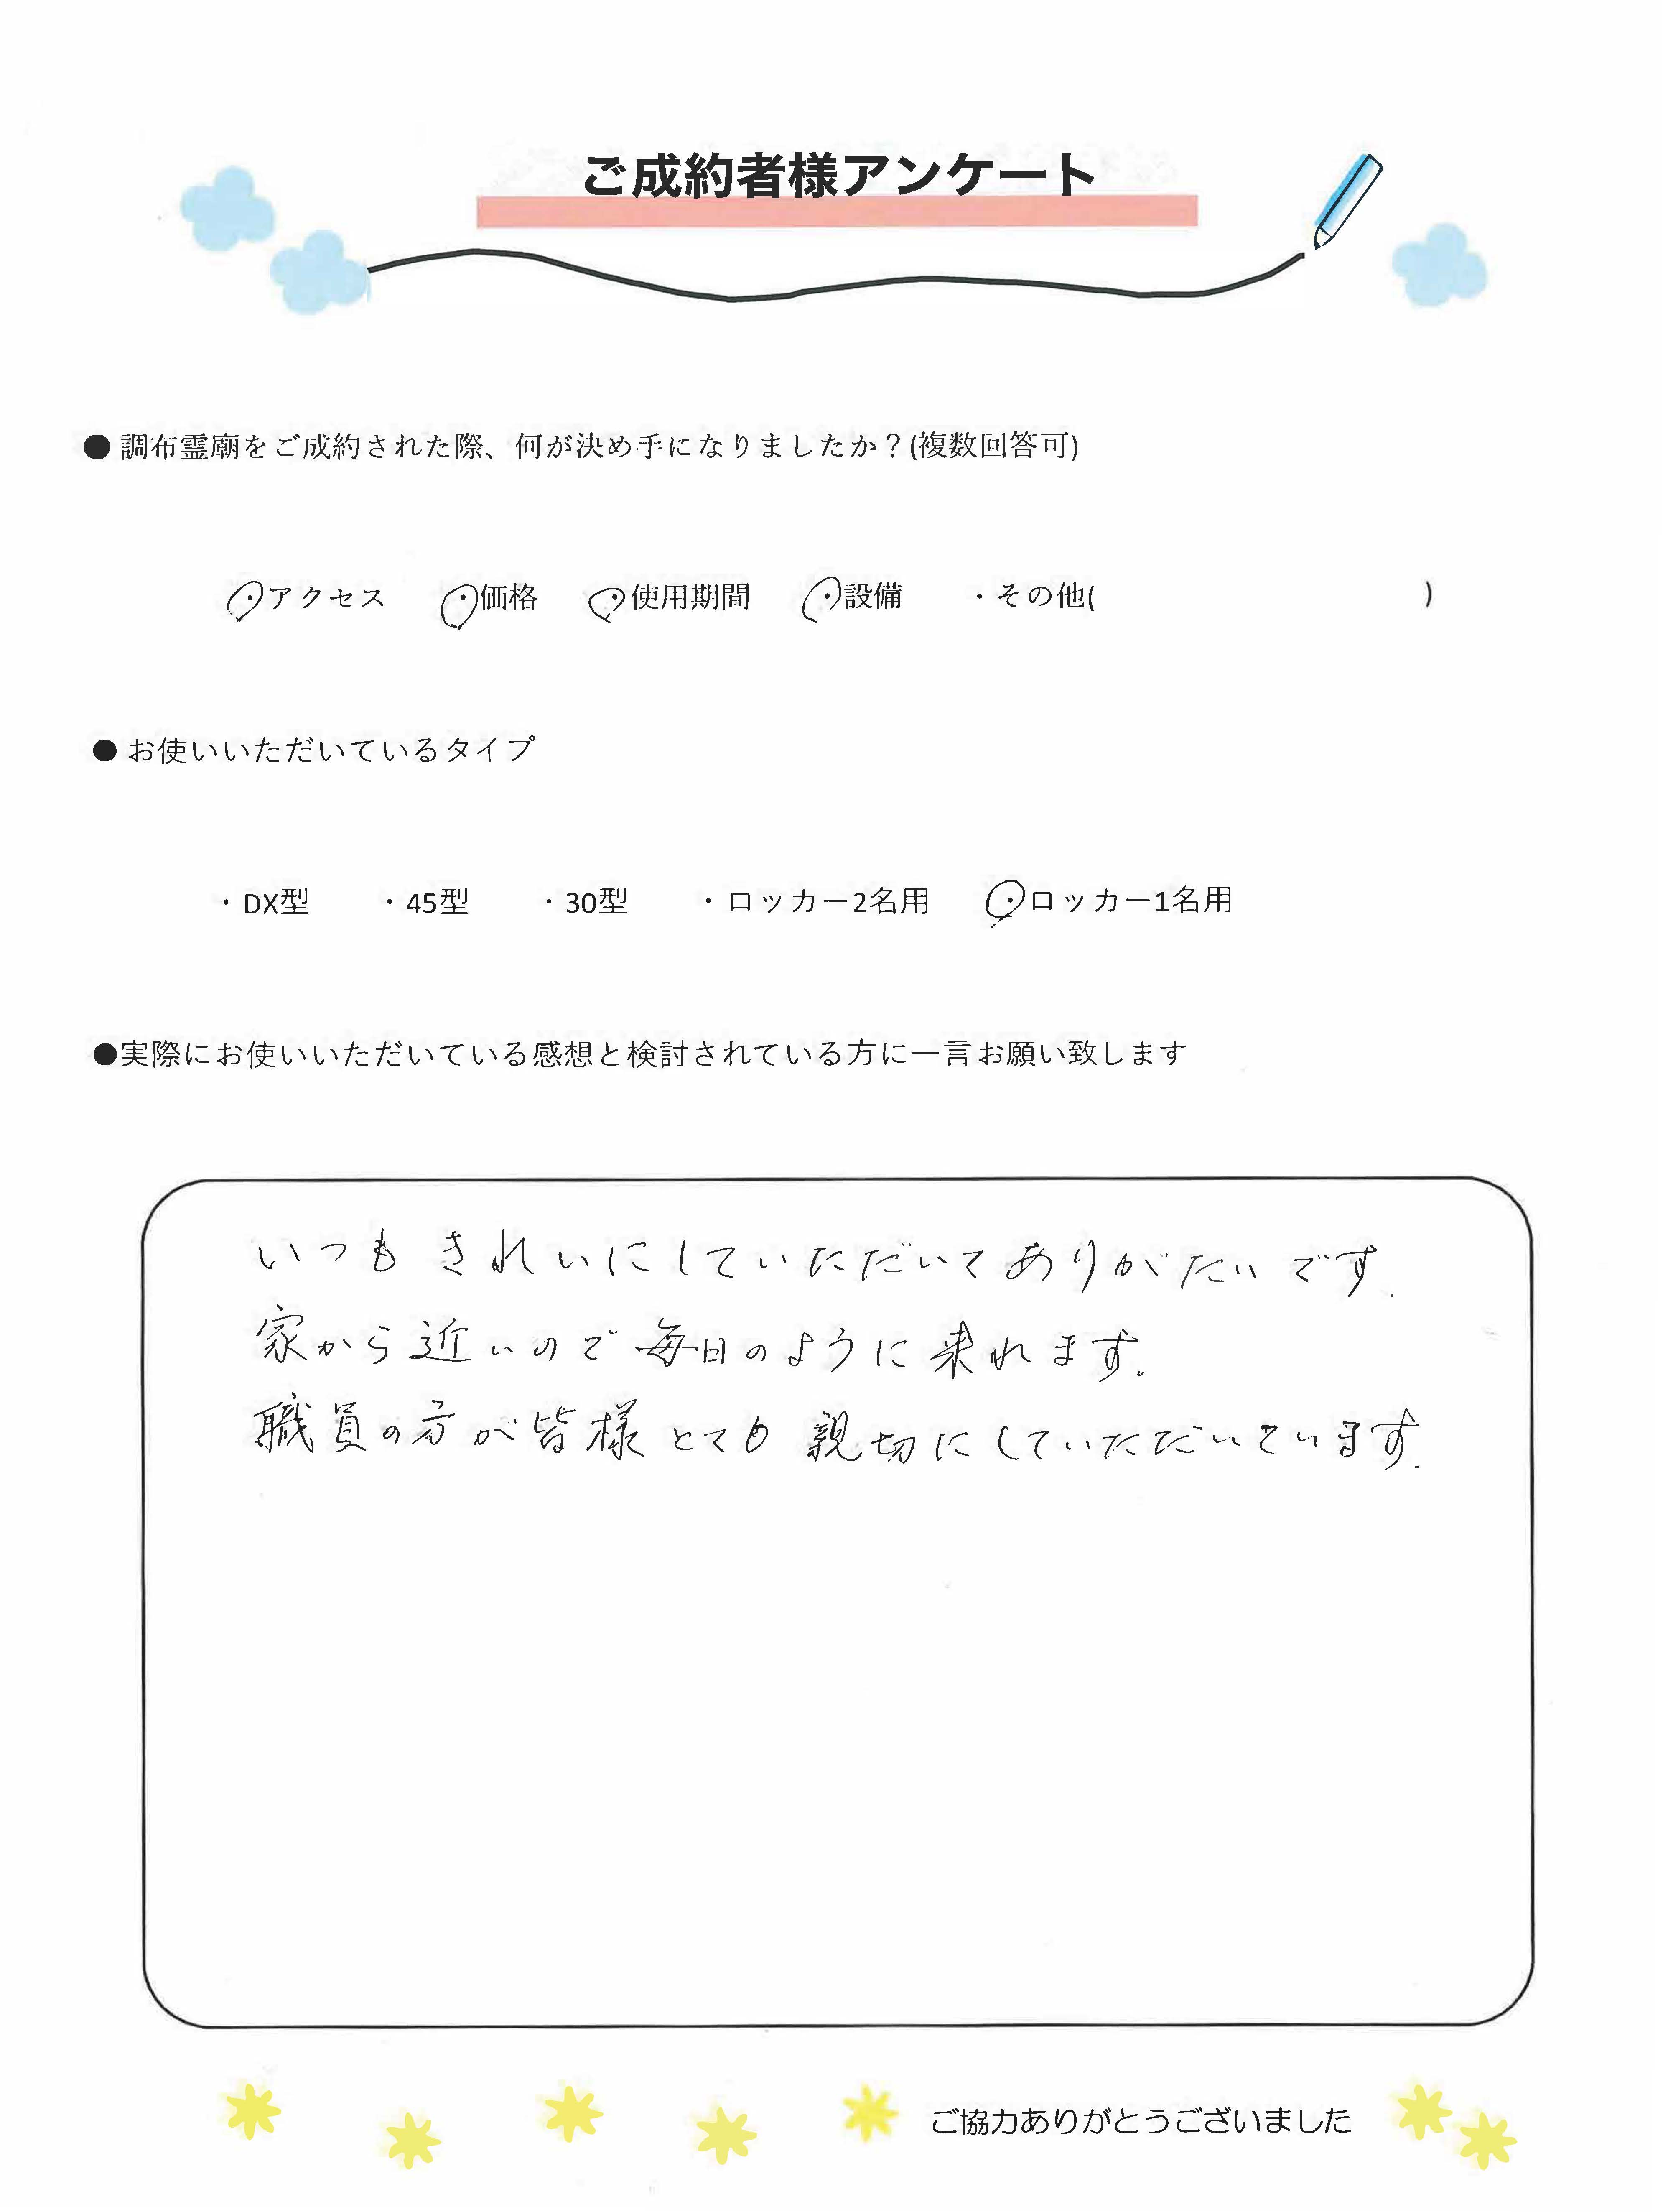 ご成約者様アンケート
●調布霊廟をご成約された際、何が決め手になりましたか？(複数回答可)
・アクセス ・価格 ・使用期間 ・設備 ・その他( )
●お使いいただいているタイプ
・DX型 ・45型 ・30型 ・ロッカー2名用 ・ロッカー1名用
●実際にお使いいただいている感想と検討されている方に一言お願い致します
いつもきれいにしていただいてありがたいです.
家から近いので毎日のように来れます。
職員の方が皆様とても親切にしていただいています.
ご協力ありがとうございました